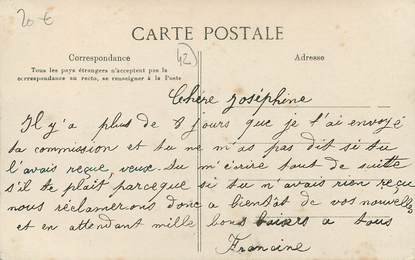 20 €
CARTE POSTALE
42
Correspondance
Adresse
Tous les pays étrangers n'acceptent pas la
correspondance au recto, se renseigner à la Poste
Chère Joséphine
Il y'a plus de 8 jours que je t'ai envoyé
ta commission et tu ne m'as pas dit si tu
l'avais reçue, veux tu m'écrire tout de suitte
s'il te plait parceque si tu n'avais rien reçu
nous réclamerons donc a bientôt de vos nouvelles
et en attendant mille bons baisers a tous
Francine